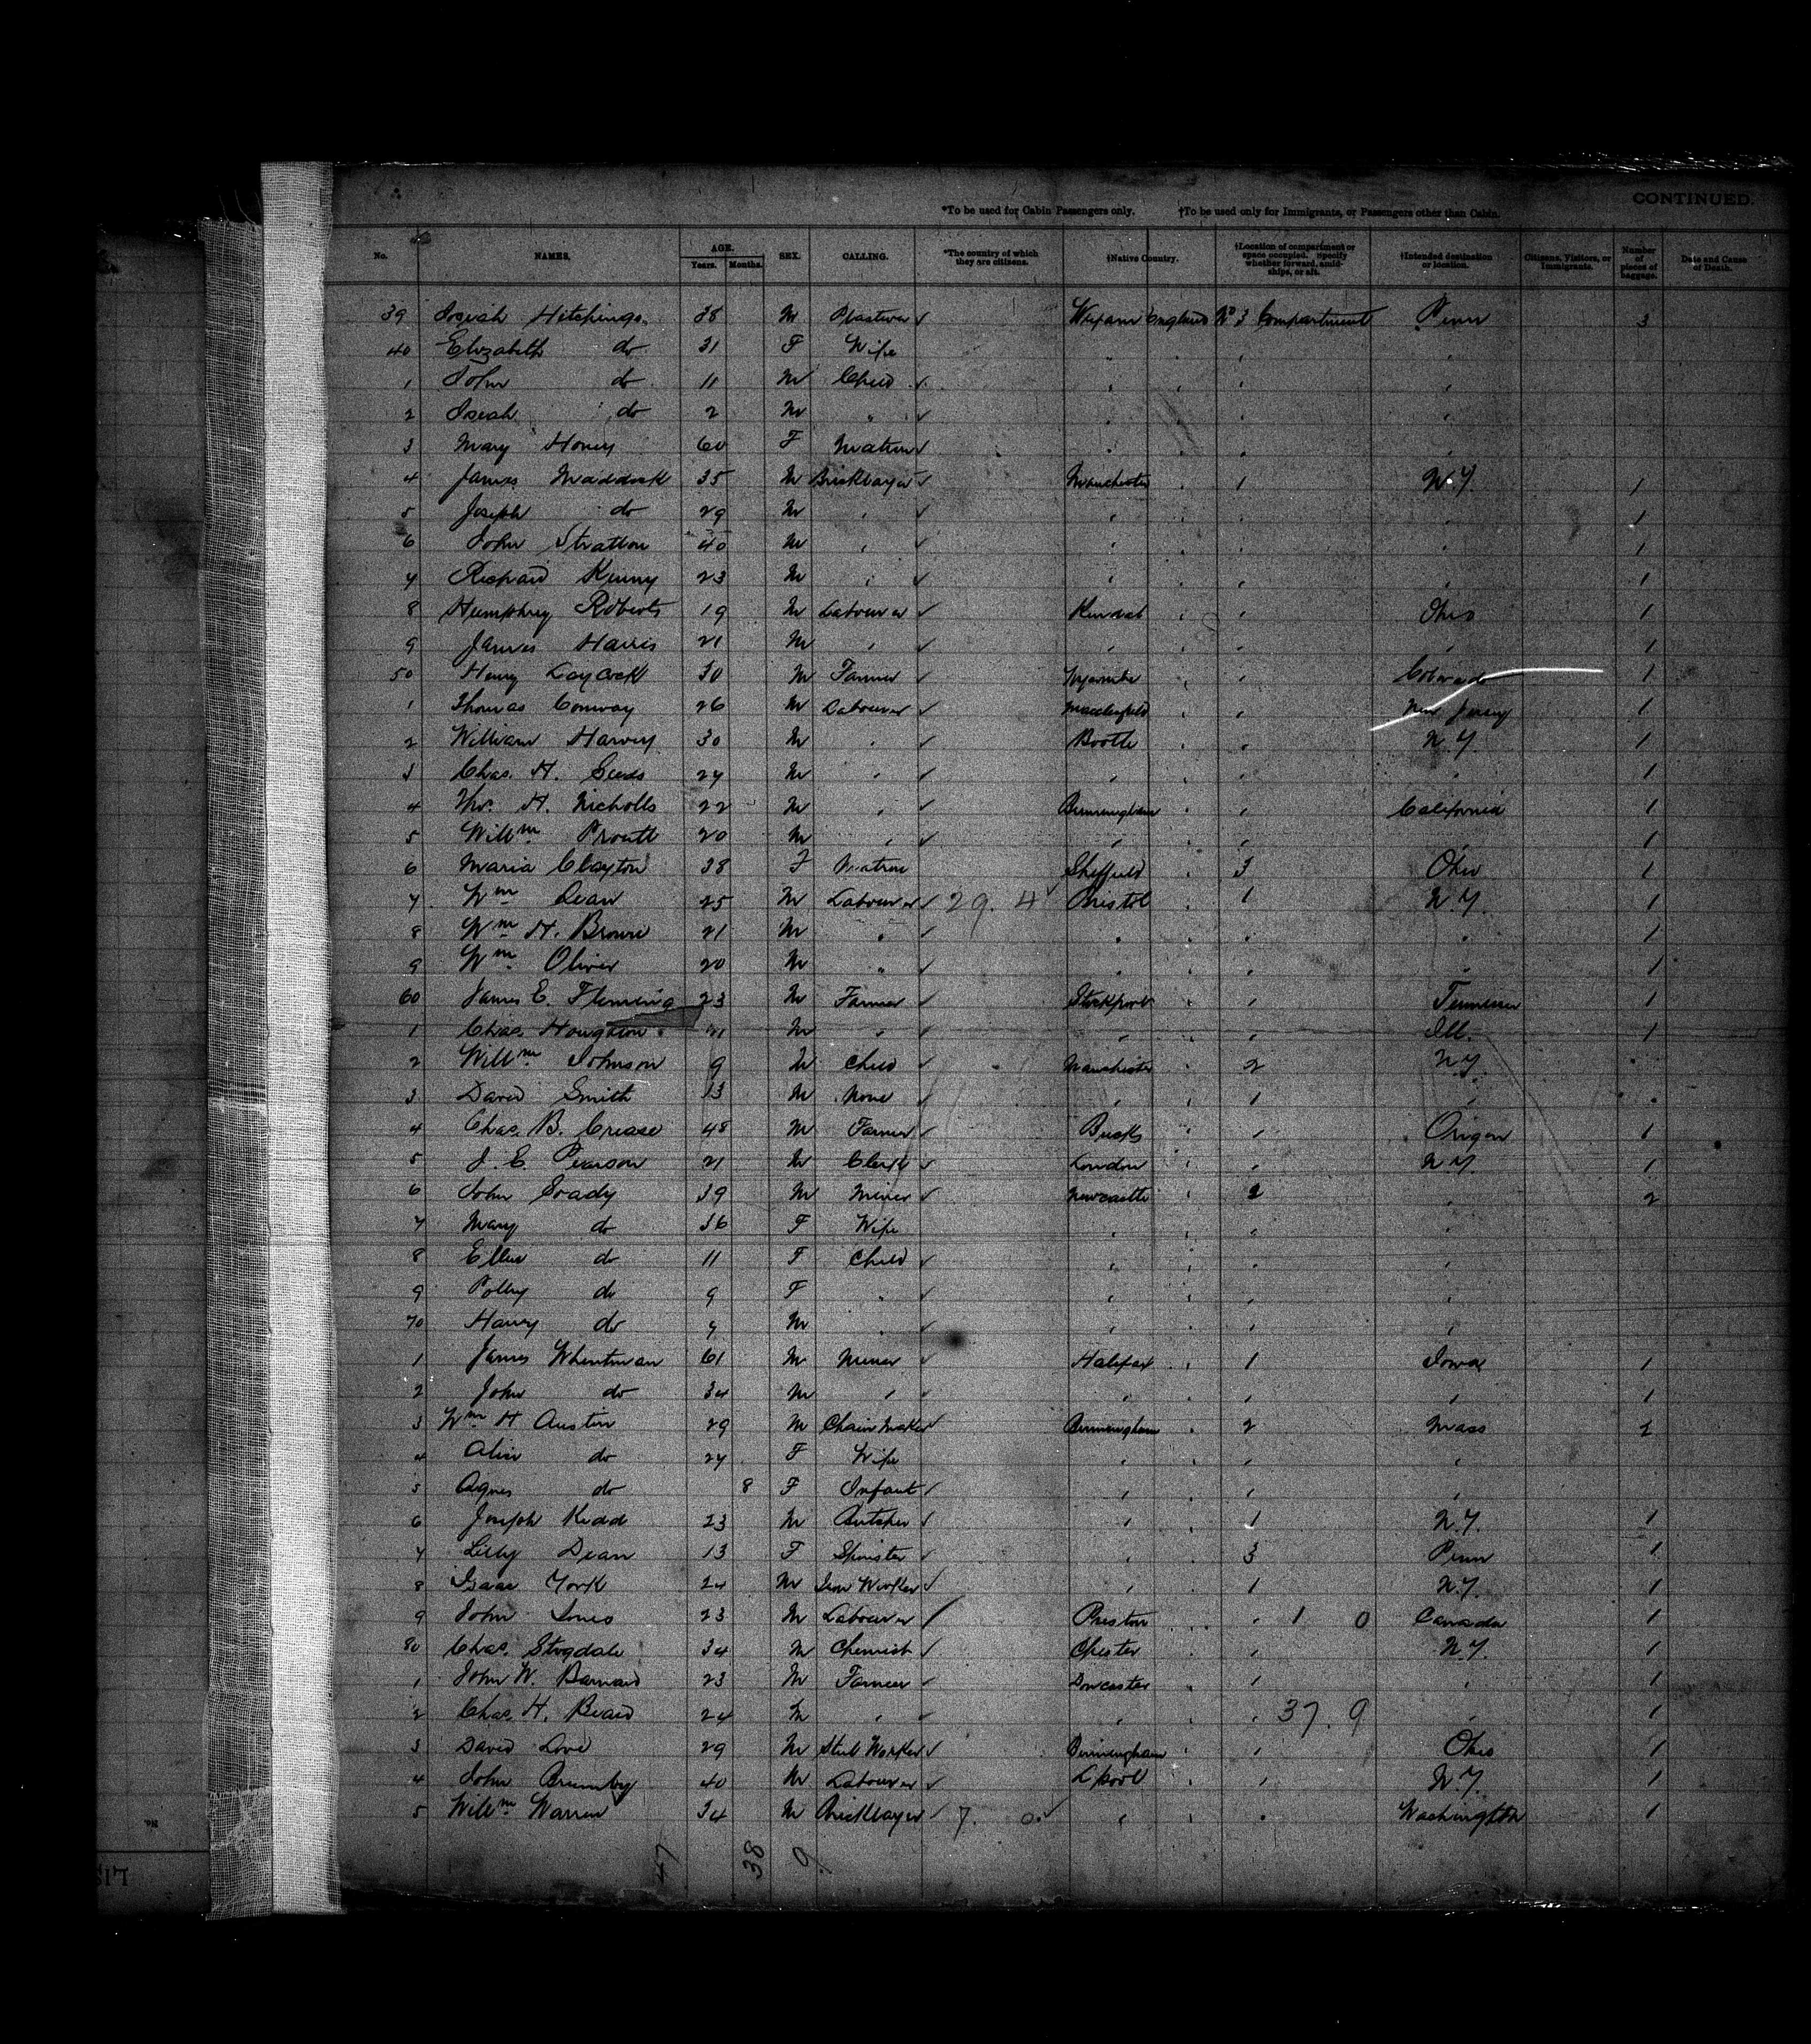 CONTINUED.
*To be used for Cabin Passengers only. †To be used only for Immigrants, or Passengers other than Cabin.
No. NAMES. AGE. Years. Months. SEX. CALLING. *The country of which they are citizens. †Native Country. †Location of compartment or space occupied. Specify whether forward, amidships, or aft. †Intended destination or location. Citizens, Visitors, or Immigrants. Number of pieces of baggage. Date and Cause of Death.
39 Hitchings 38 M Plasterer England No 3 Compartment Penn 3
40 Elizabeth do 31 F Wife " " " "
1 John do 11 M Child " " " "
2 do 2 M " " " " "
3 Mary 60 F Matron " " " "
4 James Maddock 35 M Bricklayer Manchester " 1 N.Y. 1
5 Joseph do 29 M " " " " " 1
6 John Stratton 40 M " " " " " 1
7 Richard Kenny 23 M " " " " " 1
8 Humphrey Roberts 19 M Labourer Kendal " " Ohio 1
9 James Harris 21 M " " " " " 1
50 Henry Laycock 30 M Farmer " " Colorado 1
1 Thomas Conway 26 M Labourer Macclesfield " " New Jersey 1
2 William Harvey 30 M " Bootle " " N.Y. 1
3 Chas. H. 27 M " " " " " 1
4 Thos. H. Nicholls 22 M " Birmingham " " California 1
5 Willm Proutt 20 M " " " " " 1
6 Maria Clayton 38 F Matron Sheffield " 3 Ohio 1
7 Wm Dean 25 M Labourer 29. 4 Bristol " 1 N.Y. 1
8 Wm H. Browne 21 M " " " " " 1
9 Wm Oliver 20 M " " " " " 1
60 James E. Fleming 23 M Farmer Stockport " " 1
1 Chas. Houghton 21 M " " " " Ill. 1
2 Willm Johnson 9 M Child Manchester " 2 N.Y. "
3 David Smith 13 M None " " 1 " "
4 Chas. B. Crease 48 M Farmer Bucks " " Origon 1
5 J. E. Pearson 21 M Clerk London " " N.Y. 1
6 John Grady 39 M Miner Newcastle " 2 " 2
7 Mary do 36 F Wife " " " "
8 Ellen do 11 F Child " " " "
9 Polly do 9 F " " " " "
70 Harry do 7 M " " " " "
1 James Whentman 61 M Miner Halifax " 1 Iowa 1
2 John do 34 M " " " " " 1
3 Wm H Austin 29 M Chain Maker Birmingham " 2 Mass 2
4 Alice do 27 F Wife " " " "
5 Agnes do 8 F Infant " " " "
6 Joseph Kidd 23 M Butcher " 1 N.Y. 1
7 Lilly Dean 13 F Spinster " 3 Penn 1
8 Isaac York 24 M Iron Worker " 1 N.Y. 1
9 John Jones 23 M Labourer Preston " 1 0 Canada 1
80 Chas. Stogdale 34 M Chemist Chester " N.Y. 1
1 John W. Barnard 23 M Farmer Doncaster " " " 1
2 Chas. H. Beard 24 M " " " 37. 9 " 1
3 David Love 29 M Steel Worker Birmingham " " Ohio 1
4 John Brumby 40 M Labourer Lpool " " N.Y. 1
5 Willm Warren 34 M Bricklayer 7. 0. " " " Washington 1
47 38 9